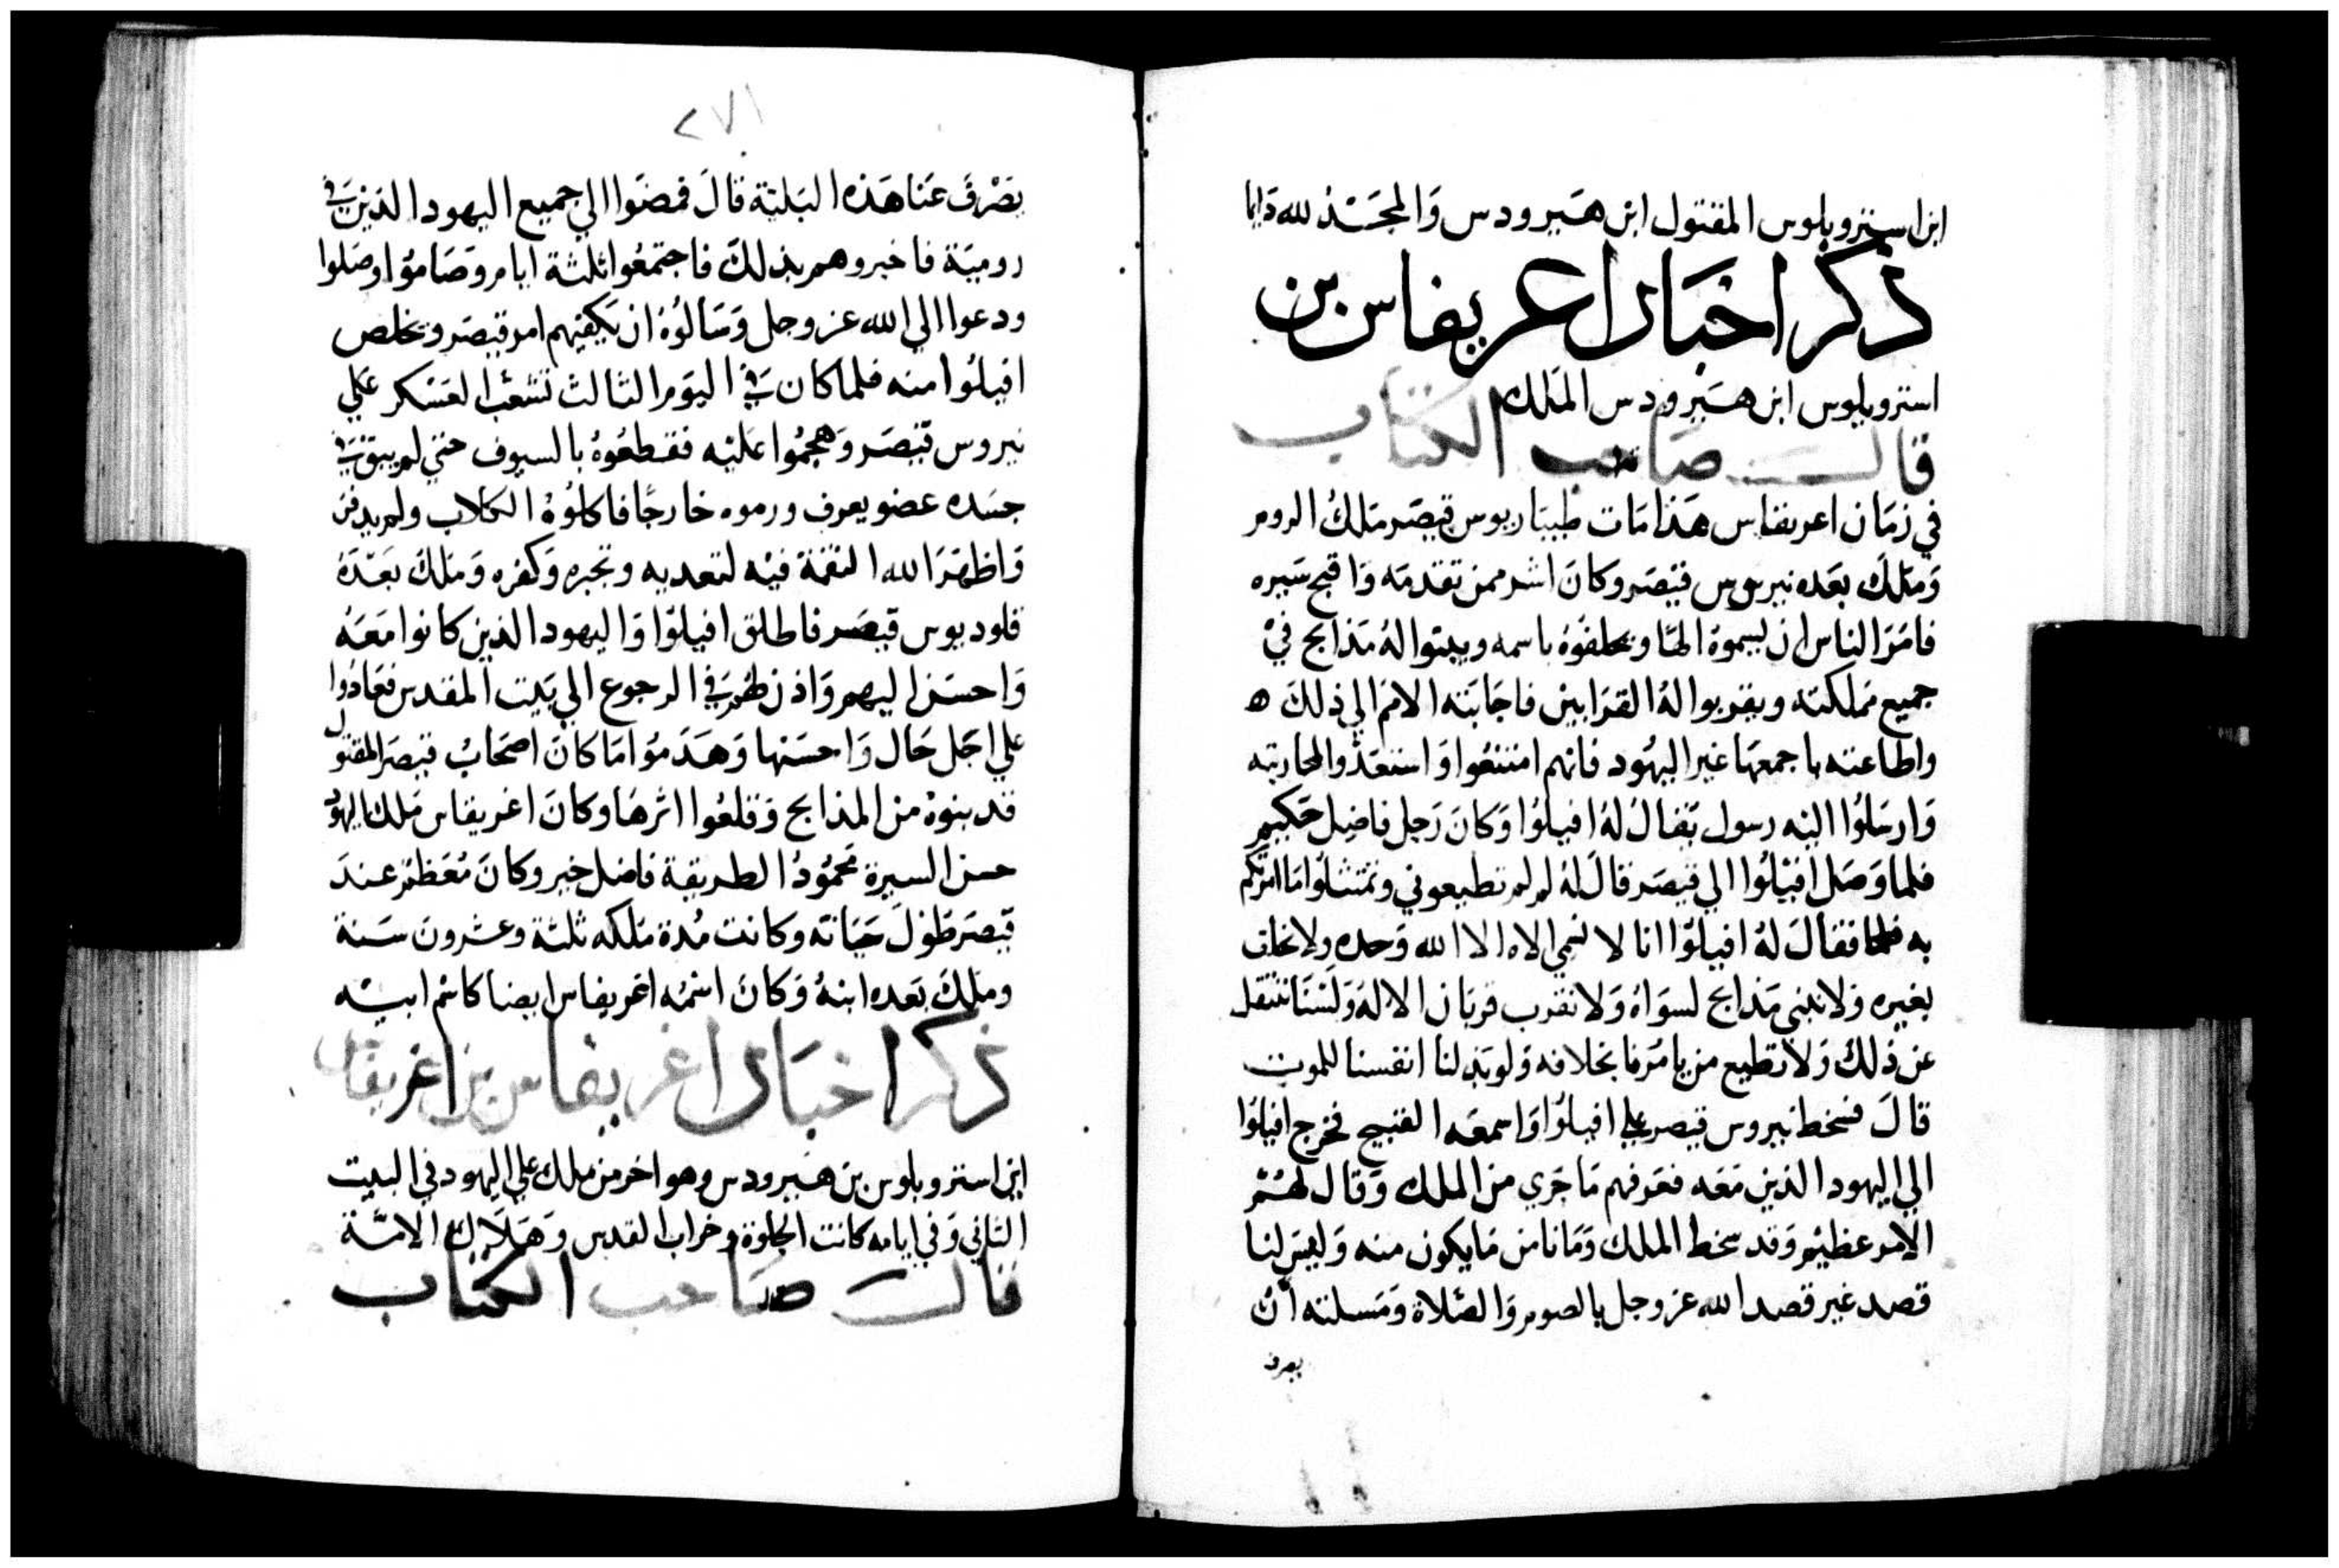 ابن استروبلوس المقتول ابن هيرودس والمجد لله دايما
ذكر اخبار اعريفاس بن
استروبلوس ابن هيرودس الملك
قال صاحب الكتاب
في زمان اعريفاس هذا مات طيباريوس قيصر ملك الروم
وملك بعده نيروس قيصر وكان اشر ممن تقدمه واقبح سيره
فامر الناس ان يسموه الها ويحلفوه باسمه ويبنوا له مذابح في
جميع مملكته ويقربوا له القرابين فاجابته الامم الي ذلك ه
واطاعته باجمعها غير اليهود فانهم امتنعوا واستعدوا لمحاربته
وارسلوا اليه رسول يقال له افيلوا وكان رجل فاضل حكيم
فلما وصل افيلوا الي قيصر قال له لم لم تطيعوني وتمتثلوا ما امرتكم
به فقال له افيلوا انا لا نسمي الاه الا الله وحده ولا نحلف
بغيره ولا نبني مذابح لسواه ولا نقرب قربان الا له ولسنا ننتقل
عن ذلك ولا نطيع من يامرنا بخلافه ولو بذلنا انفسنا للموت
قال فسخط نيروس قيصر علي افيلوا واسمعه القبيح فخرج افيلوا
الي اليهود الذين معه فعرفهم ما جري من الملك وقال لهم
الامر عظيم وقد سخط الملك وما نامن ما يكون منه وليس لنا
قصد غير قصد الله عز وجل بالصوم والصلاة ومسلته ان
يصرف
٢٧١
يصرف عنا هذه البلية قال فمضوا الي جميع اليهود الذين في
رومية فاخبروهم بذلك فاجتمعوا ثلثة ايام وصاموا وصلوا
ودعوا الي الله عز وجل وسالوه ان يكفيهم امر قيصر ويخلص
افيلوا منه فلما كان في اليوم الثالث تشغب العسكر علي
نيروس قيصر وهجموا عليه فقطعوه بالسيوف حتي لم يبق في
جسده عضو يعرف ورموه خارجا فاكلوه الكلاب ولم يدفن
واظهر الله النقمة فيه لتعديه وتجبره وكفره وملك بعده
قلوديوس قيصر فاطلق افيلوا واليهود الذين كانوا معه
واحسن اليهم واذن لهم في الرجوع الي بيت المقدس فعادوا
علي اجمل حال واحسنها وهدموا ما كان اصحاب قيصر المقتول
قد بنوه من المذابح وقلعوا اثرها وكان اغريفاس ملك اليهود
حسن السيرة محمود الطريقة فاضل خير وكان معظم عند
قيصر طول حياته وكانت مدة ملكه ثلثة وعشرون سنة
وملك بعده ابنه وكان اسمه اغريفاس ايضا كاسم ابيه
ذكر اخبار اغريفاس بن اغريفاس
ابن استروبلوس بن هيرودس وهو اخر من ملك علي اليهود في البيت
الثاني وفي ايامه كانت الجلوة وخراب القدس وهلاك الامة
قال صاحب الكتاب